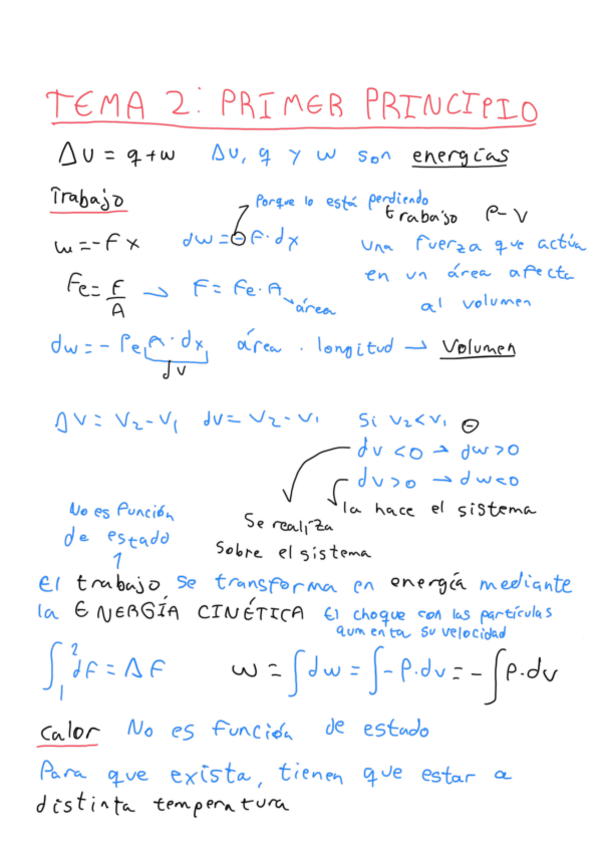 TEMA 2: PRIMER PRINCIPIO
ΔU = q + w   ΔU, q y w son energías
Trabajo
Porque lo está perdiendo
trabajo P-V
w = -F x   dw = ⊖ F · dx   una fuerza que actúa
en un área afecta
al volumen
Fe = F/A → F = Fe · A
área
dw = - Pe A · dx   área . longitud → Volumen
dv
ΔV = V2 - V1   dv = V2 - V1   Si V2 < V1 ⊖
dv < 0 → dw > 0
dv > 0 → dw < 0
la hace el sistema
Se realiza
sobre el sistema
No es función
de estado
El trabajo se transforma en energía mediante
la ENERGÍA CINÉTICA   El choque con las partículas
aumenta su velocidad
∫₁² dF = ΔF   w = ∫dw = ∫-P·dv = -∫P·dv
Calor   No es función de estado
Para que exista, tienen que estar a
distinta temperatura